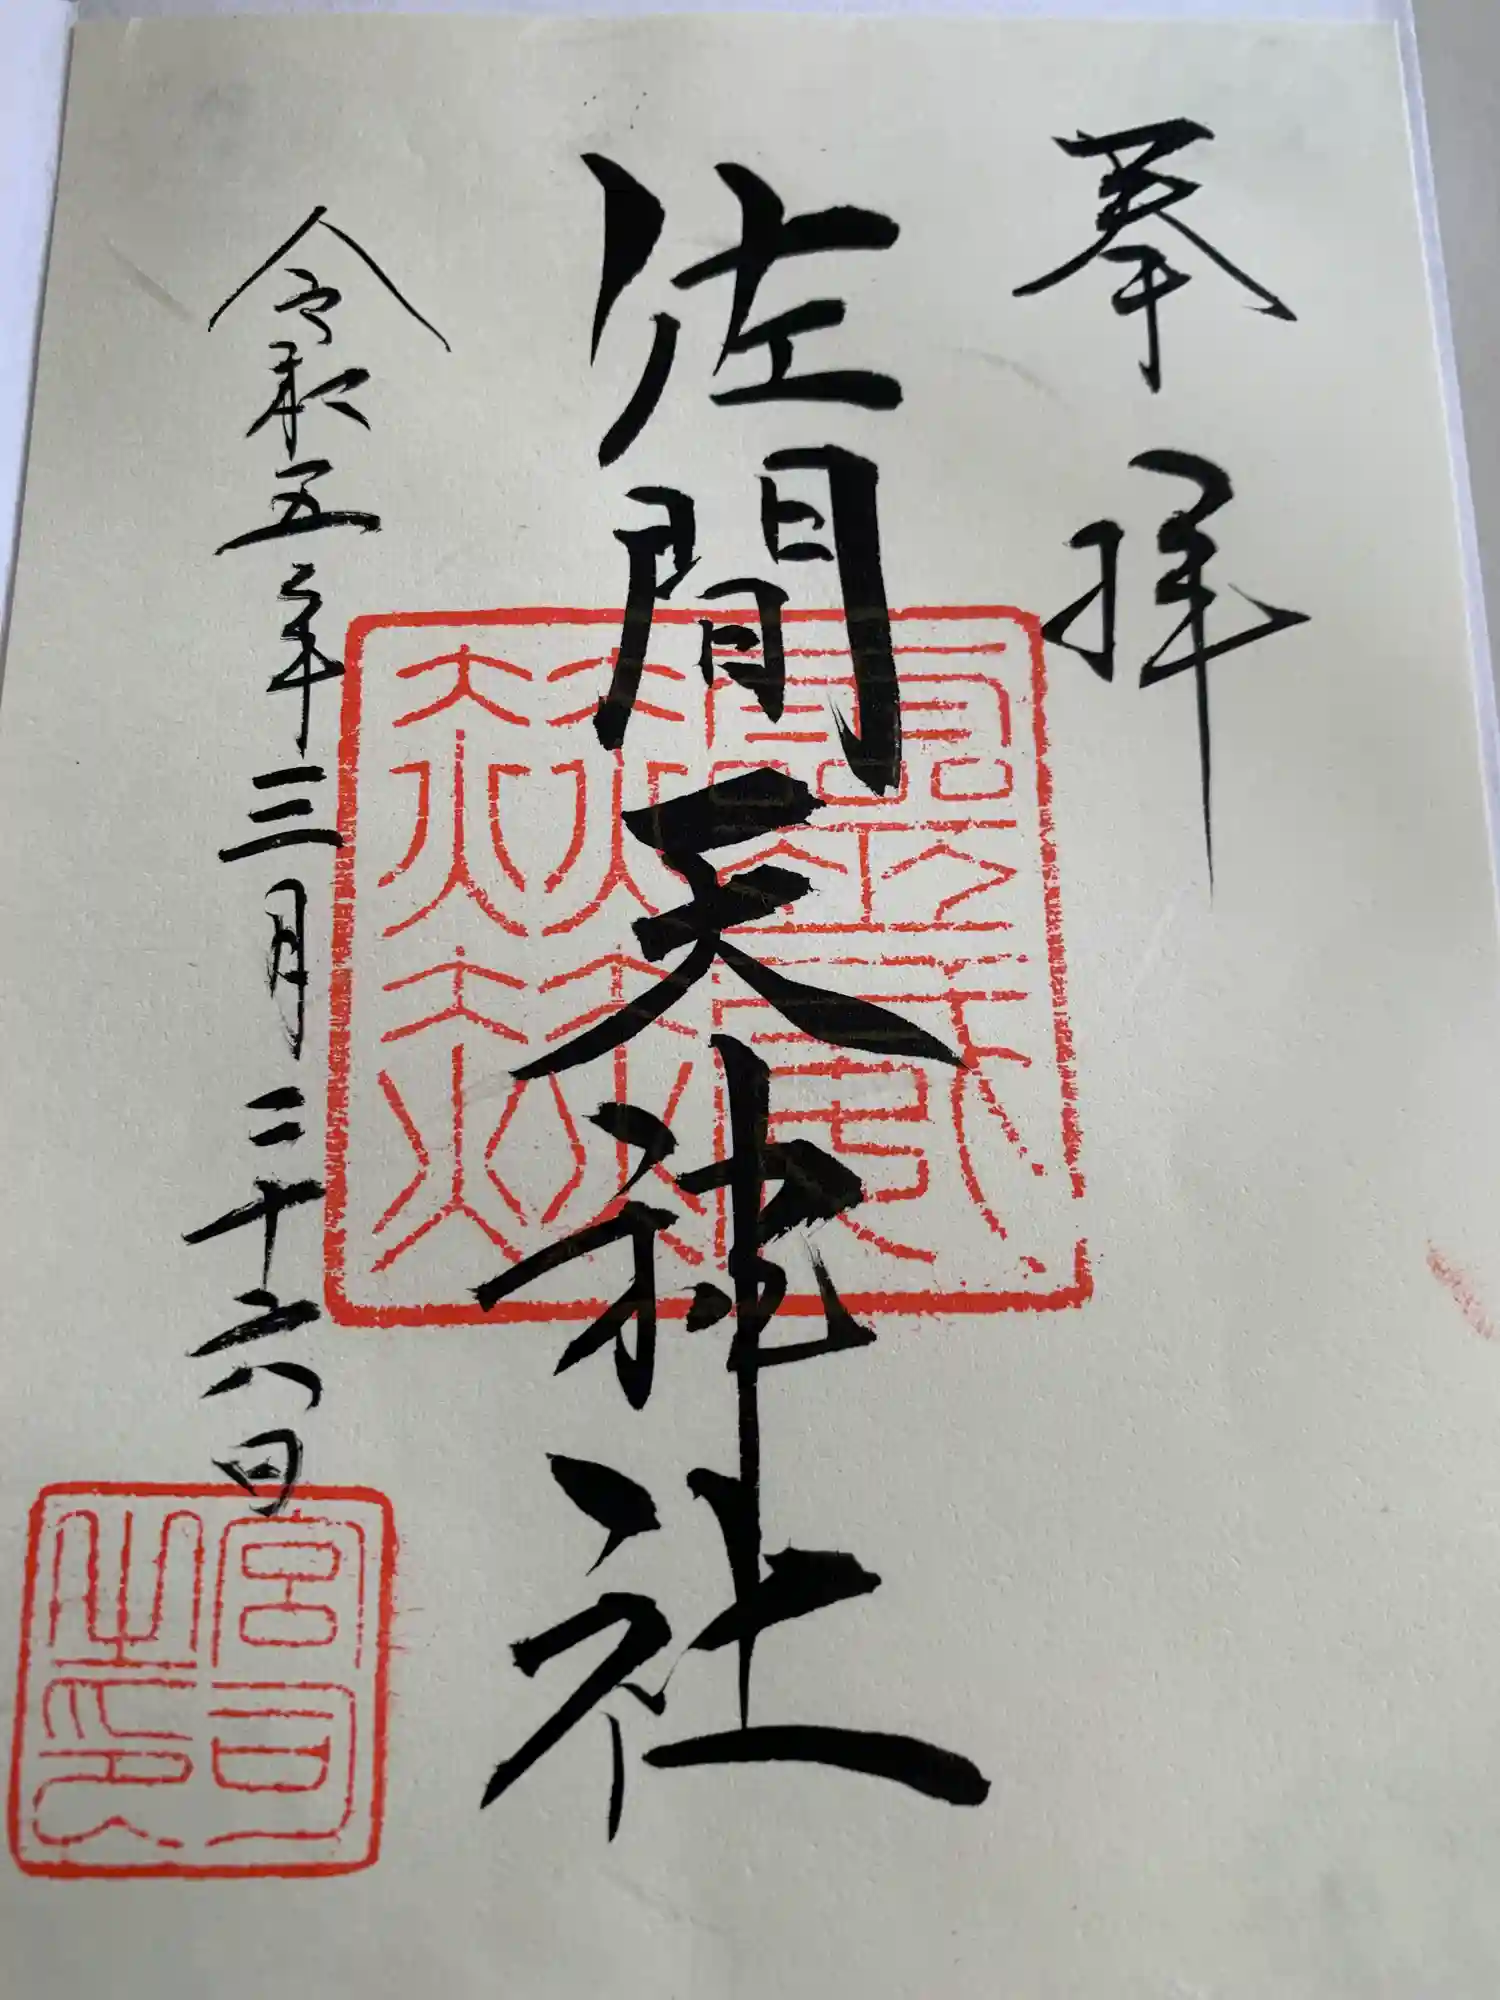 奉拝
佐間天神社
令和五年三月二十六日
宮司之印